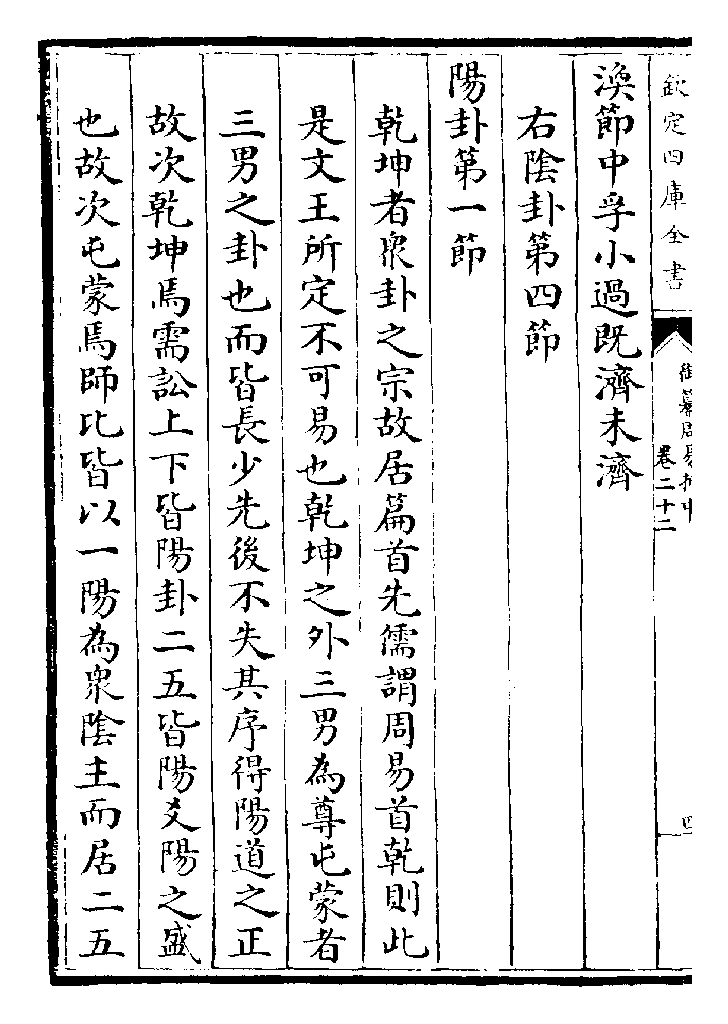 欽定四庫全書
御纂周易折中
卷二十二
渙節中孚小過既濟未濟
右陰卦第四節
陽卦第一節
乾坤者衆卦之宗故居篇首先儒謂周易首乾則此
是文王所定不可易也乾坤之外三男為尊屯蒙者
三男之卦也而皆長少先後不失其序得陽道之正
故次乾坤焉需訟上下皆陽卦二五皆陽爻陽之盛
也故次屯蒙焉師比皆以一陽為衆陰主而居二五